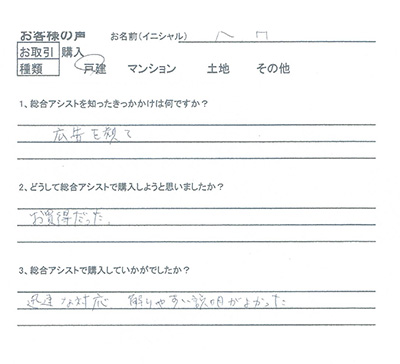 お客様の声 お名前(イニシャル)
お取引 購入
種類 戸建 マンション 土地 その他
1、総合アシストを知ったきっかけは何ですか?
広告を観て
2、どうして総合アシストで購入しようと思いましたか?
お買得だった。
3、総合アシストで購入していかがでしたか?
迅速な対応 解りやすい説明がよかった